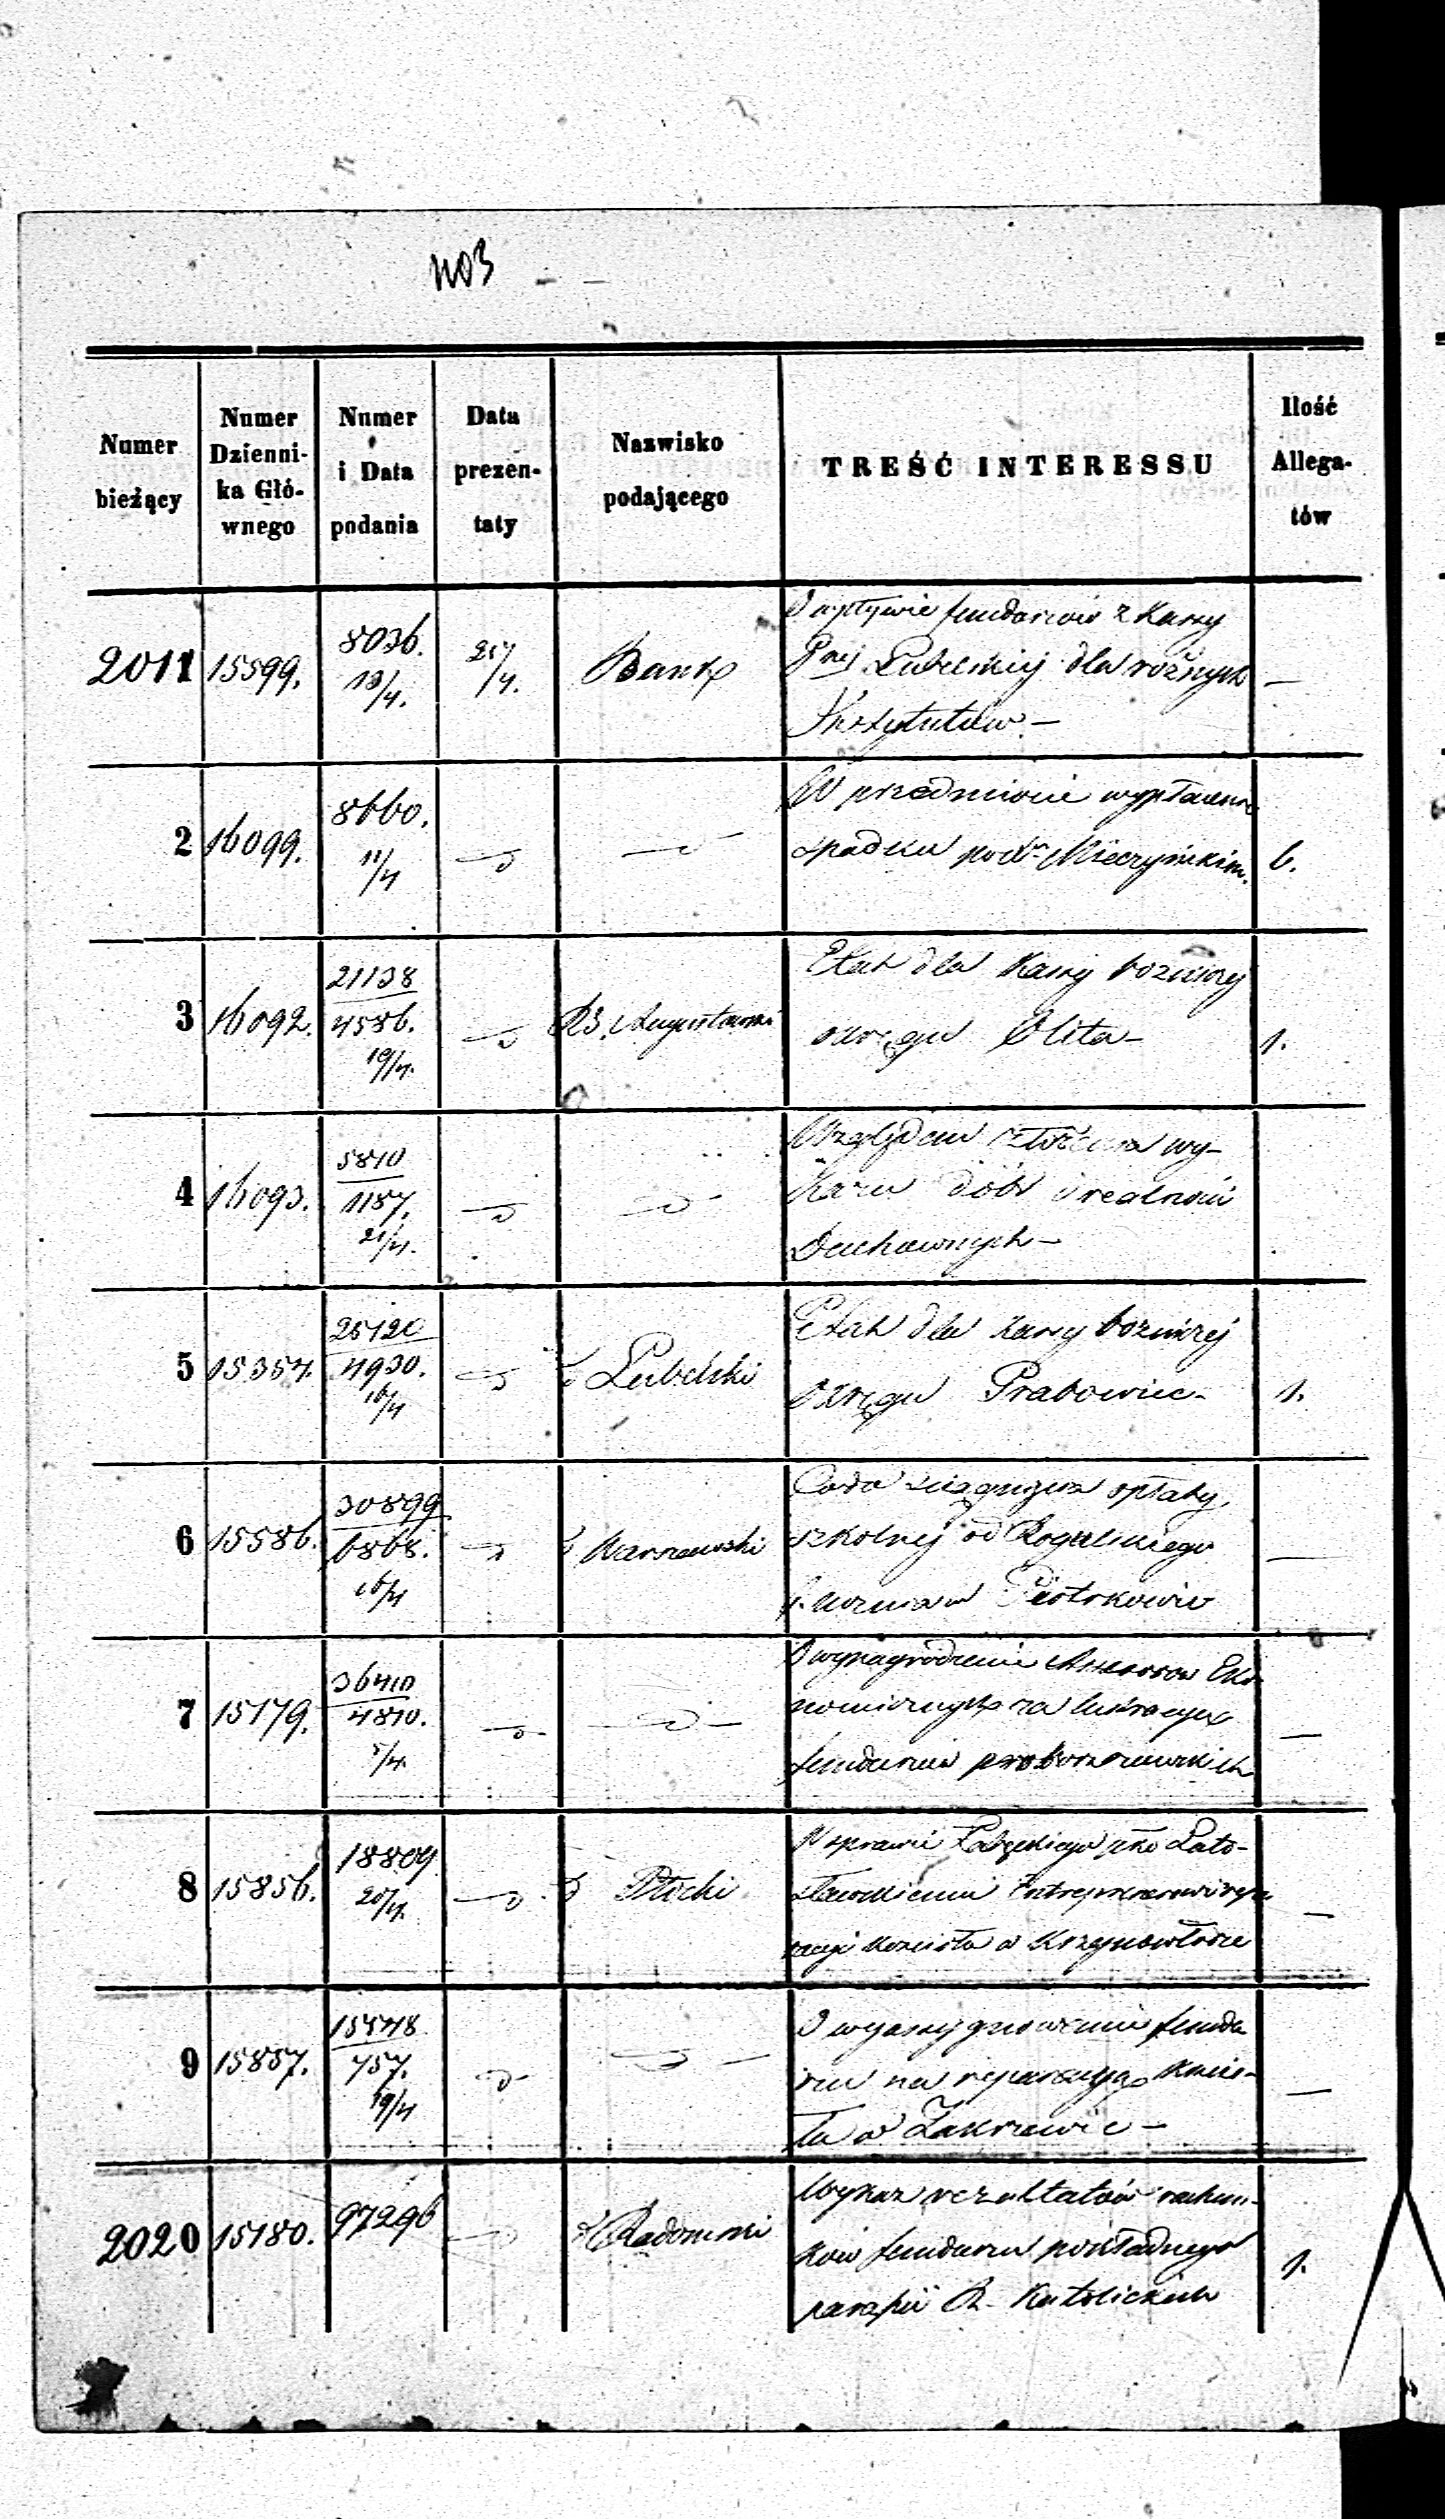 1103
Numer bieżący
Numer Dzienni-ka Głó-wnego
Numer i Data podania
Data prezen-taty
Nazwisko podającego
TREŚĆ INTERESSU
Ilość Allega-tów
2011 15599. 8036. 18/4. 25/4. Bank
O wpływie funduszów z Kassy
Gnej Lubelskiej dla różnych —
Instytutów. —
2 16099. 8660. 11/4
W przedmiocie wypłacenia
spadku po Mieczyńskim. 6.
3 16092. 21138 4586. 19/4. RG. Augustowski
Etat dla Kassy bożniczej
okręgu Olita — 1.
4 16093. 5810 1157. 21/4.
Względem złożenia wy-
kazu dóbr i realności
Duchownych —
5 15354. 25120 4930. 16/4 Lubelski
Etat dla Kassy bożniczej
Okręgu Grabowiec — 1.
6 15586. 30899 6868. 16/4 Warszawski
Co do ściągnięcia opłaty
szkolnej od Rogulskiego
ucznia w Piotrkowie —
7 15179. 36410 4810. 5/4.
O wynagrodzenie Assessorów Eko-
nomicznych za lustracyę
funduszów proboszczowskich —
8 15856. 18809 20/4. Płocki
W sprawie
Entreprenerowi repa-
racyi kościoła w Krzynowłodze —
9 15857. 15448 757. 19/4
O wyassygnowanie fundu
szu na reparacyą kościo-
ła w Zakrzewie — —
2020 15180. 97296 Radomski
Wykaz rezultatów rachun-
ków funduszu pokładnego
parafii R. Katolickich 1.